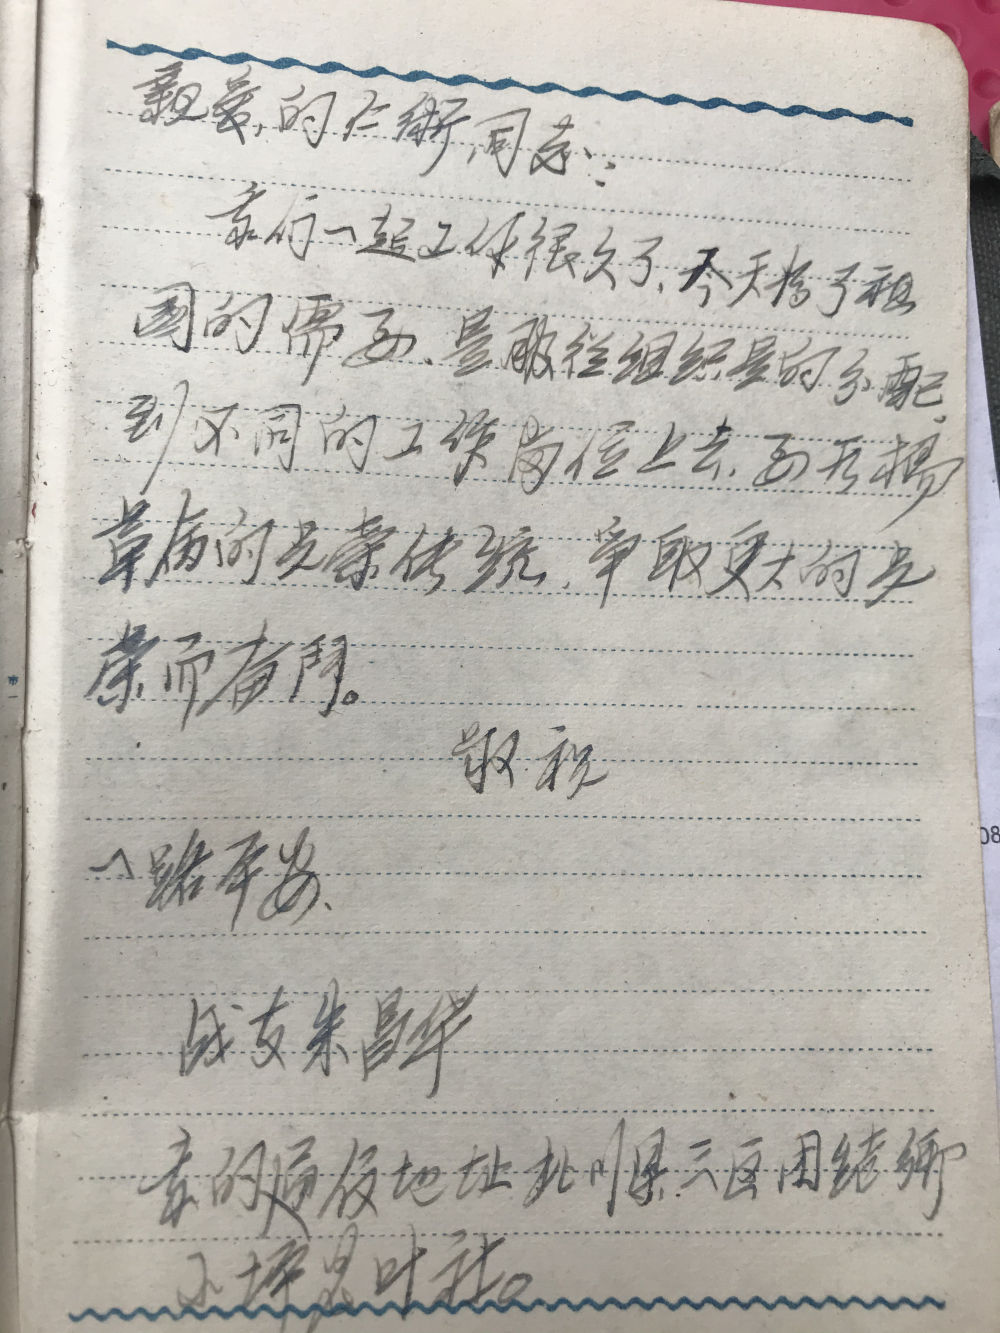 親爱的仁術同志:
我们一起工作很久了、今天为了祖
國的需要、是服從組織是的分配、
到不同的工作崗位上去、要发揚
革命的光荣传統、争取更大的光
荣而奋鬥。
敬祝
一路平安、
战友朱昌华
我的通信地址北川县三区团结鄉
小坪 社。
08